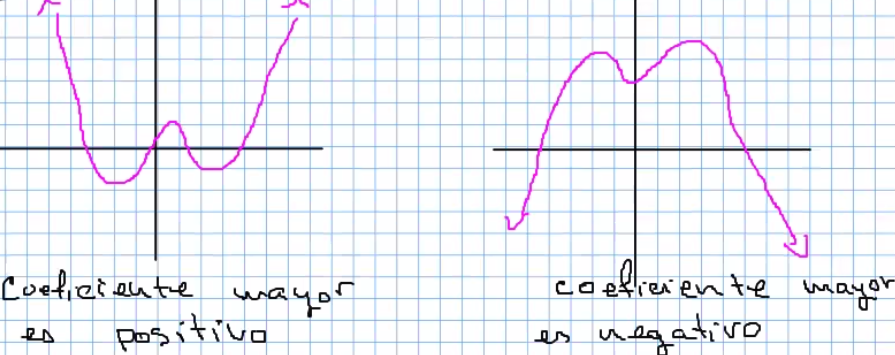 Coeficiente mayor
es positivo
coeficiente mayor
es negativo